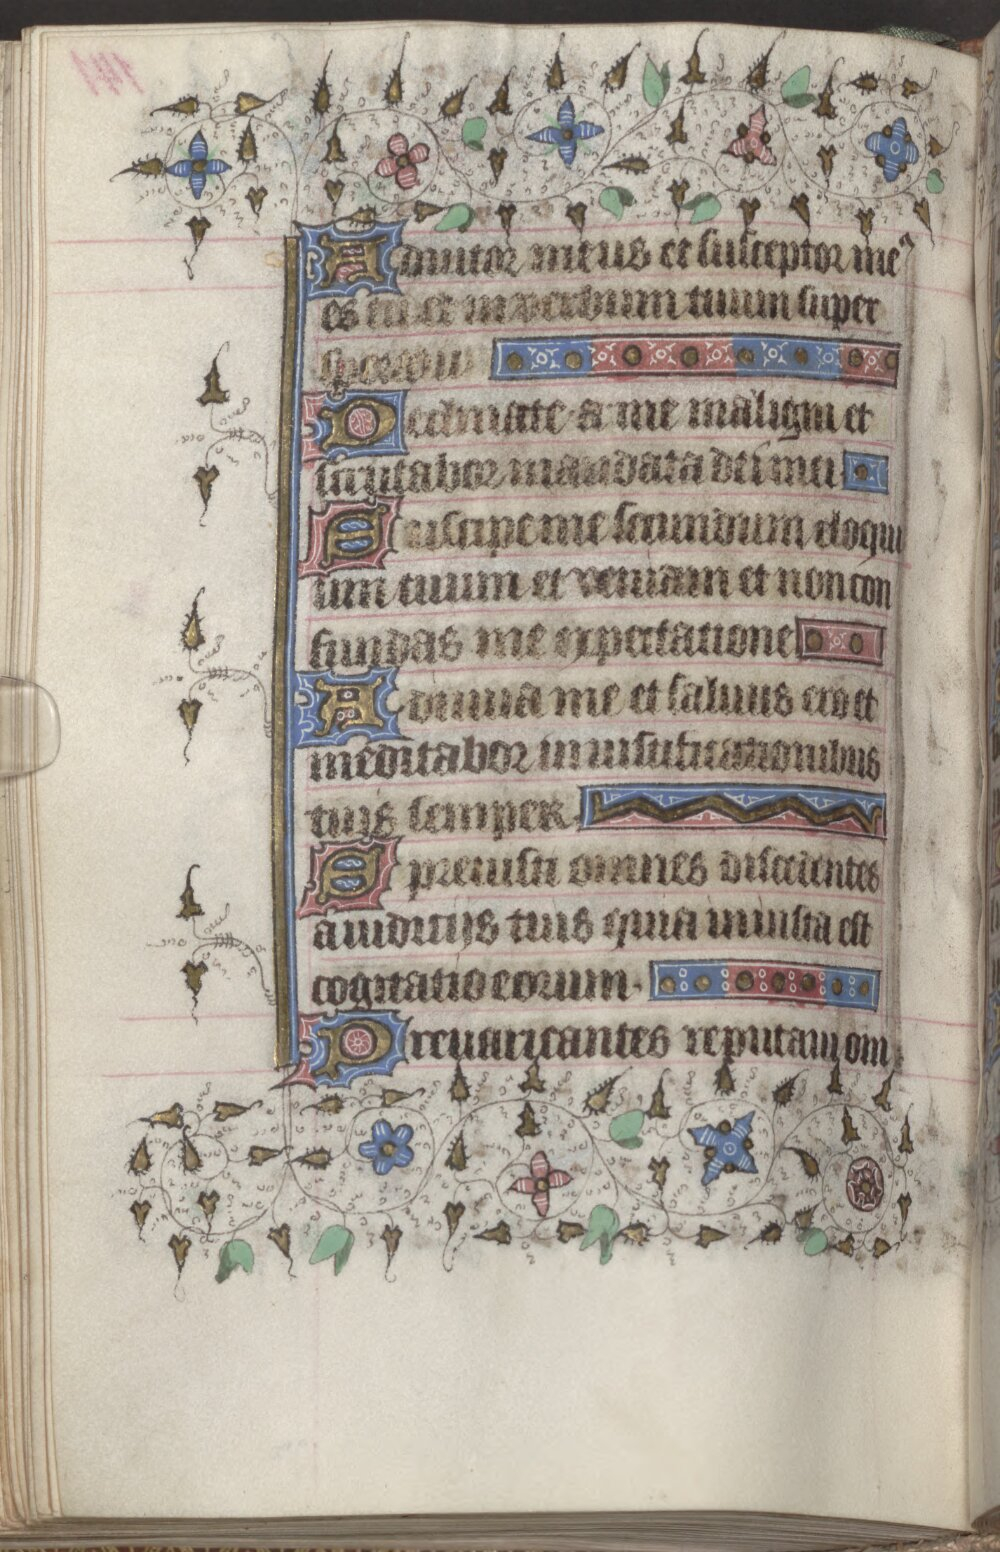 Adiutor meus et susceptor me⁹
es tu et in verbum tuum super
speravi
Declinate a me maligni et
scrutabor mandata dei mei
Suscipe me secundum eloqui
um tuum et vivam et non con
fundas me expectatione
Adiuva me et salvus ero et
meditabor in iustificationibus
tuis semper
Sprevisti omnes discedentes
a iudiciis tuis quia iniusta est
cogitatio eorum
Prevaricantes reputavi om